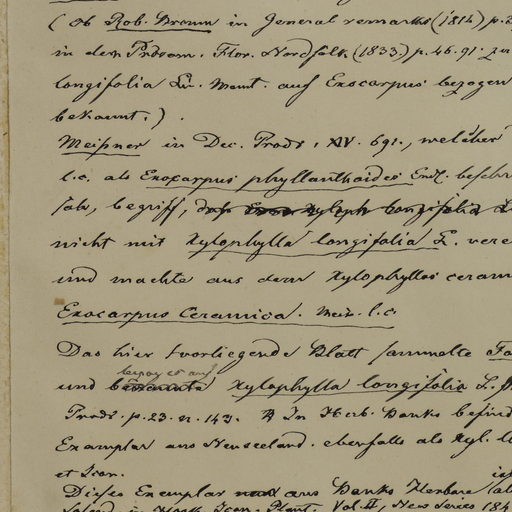 (ob Rob. Brown in General remarks (1814) p.
in dem Prodrom. Flor. Norfolk (1833) p. 46. 91. zu
longifolia Lin. Mant. auf Exocarpus bezogen
bekannt.).
Meißner in Dec. Prodr. XIV. 691., welcher
l.c. als Exocarpus phyllanthoides Endl. beschr
sah, begriff, daß Xyloph longifolia L
nicht mit Xylophylla longifolia L. vere
und machte aus dem Xylophyllos ceram
Exocarpus Ceramica. Meis. l.c.
Das hier vorliegende Blatt sammelte Fo
bezog es auf
und benannte Xylophylla longifolia L. f.
Prodr. p. 23. n. 143. In Herb. Banks befind
Exemplar aus Neuseeland. ebenfalls als Xyl. lo
et Icon.
Dieses Exemplar aus Banks Herbare ist
in Hook. Icon. Plant. Vol. II, New Series 184